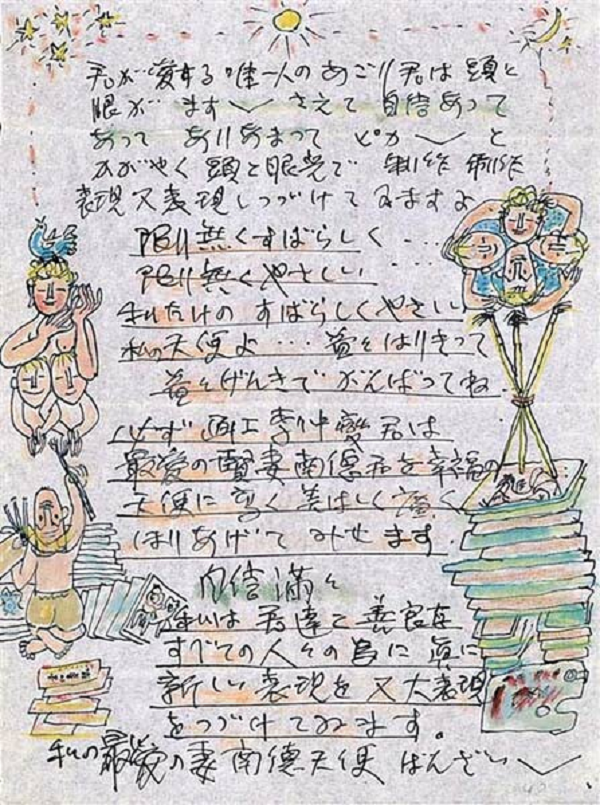 君が愛する唯一人のあごり君は 頭と
眼が ます〱 さえて 自信あって
あって ありあまって ピカ〱 と
かがやく 頭と眼光で 制作 制作
表現 又 表現しつづけてゐますよ
限り無くすばらしく ・・・
限り無くやさしい ・・・
私だけの すばらしくやさしい
私の天使よ ・・・ 益々はりきって
益々げんきで がんばってね
必ず 画工李仲燮君は
最愛の賢妻南徳君を幸福の
天使に 高く 美しく 広く
ほりあげて みせます
自信満々
私は 君達と 善良な
すべての人々の為に 真に
新しい 表現を 又 大表現
をつづけてゐます。
私の最愛の妻 南徳天使 ばんざい〱